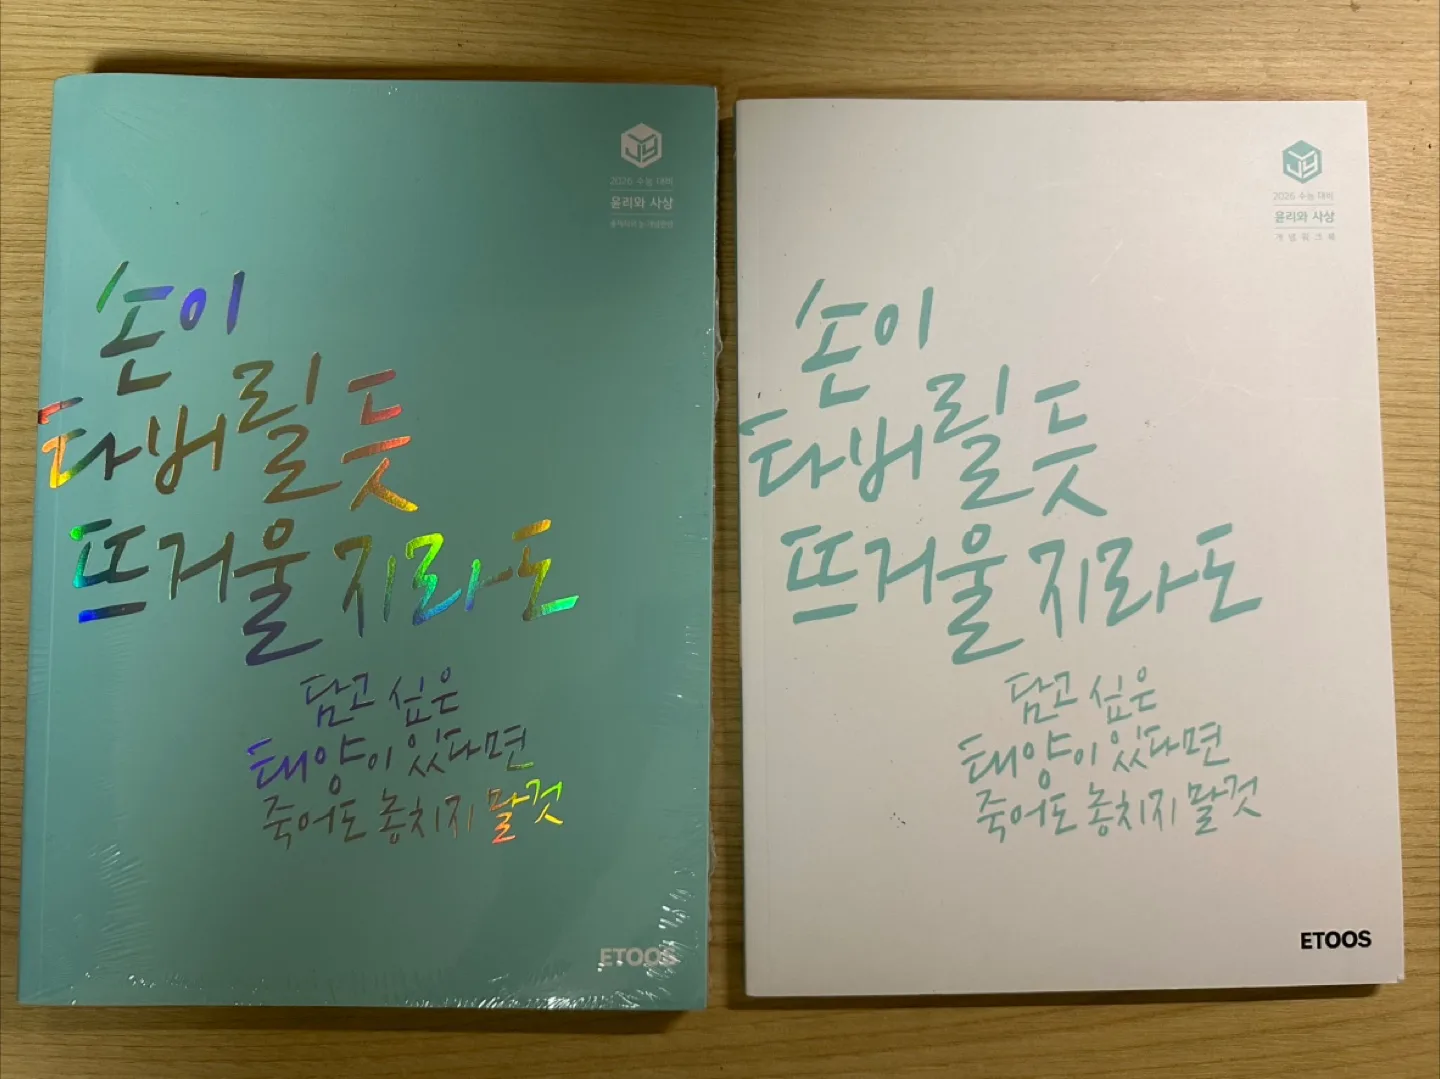 2026 수능 대비
윤리와 사상
손이
타버릴 듯
뜨거울지라도
담고 싶은
태양이 있다면
죽어도 놓치지 말 것
ETOOS
2026 수능 대비
윤리와 사상
개념워크북
손이
타버릴 듯
뜨거울지라도
담고 싶은
태양이 있다면
죽어도 놓치지 말 것
ETOOS